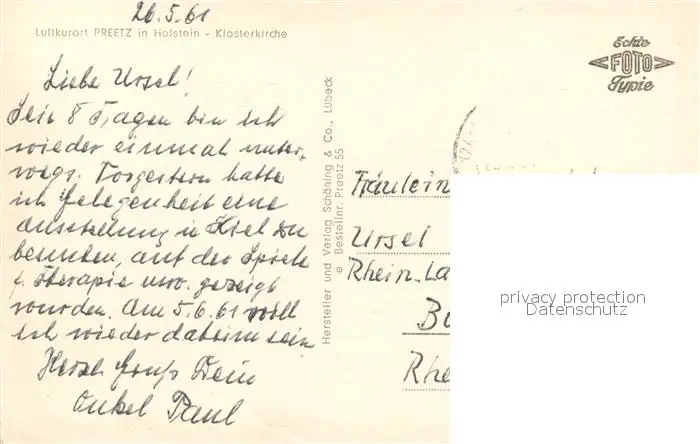 26.5.61
Luftkurort PREETZ in Holstein - Klosterkirche
Echte
FOTO
Typie
Liebe Ursel!
Seit 8 Tagen bin ich
wieder einmal unter-
wegs. Vorgestern hatte
ich Gelegenheit eine
Ausstellung in Kiel zu
besuchen, auf der Spiele
f. Therapie usw. gezeigt
wurden. Am 5.6.61 will
ich wieder daheim sein
Herzl. Gruß Dein
Onkel Paul
Hersteller und Verlag Schöning & Co., Lübeck
e Bestellnr. Preetz 55
Fräulein
Ursel
Rhein. La
Bo
Rhe
privacy protection
Datenschutz